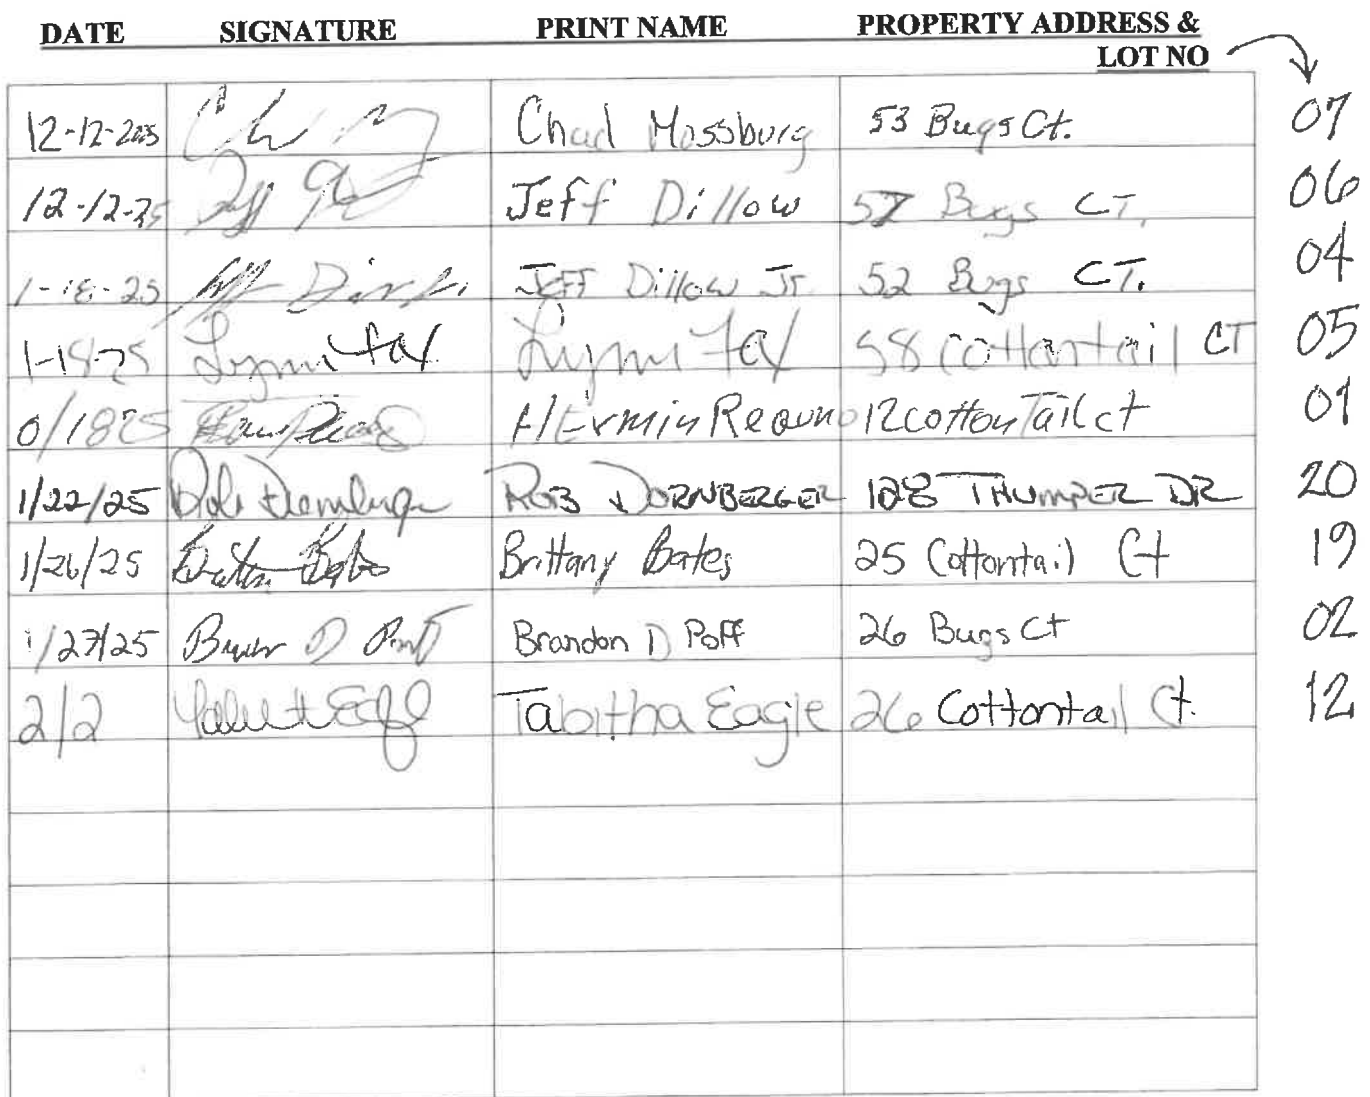 DATE SIGNATURE PRINT NAME PROPERTY ADDRESS &
LOT NO
12-12-2025 Chad Mossburg 53 Bugs Ct. 07
12-12-25 Jeff Dillow 57 Bugs CT. 06
1-18-25 Jeff Dillow Jr. 52 Bugs CT. 04
1-18-25 Lynni Fax Lynni Fax 58 Cottontail CT 05
0/1825 12 cotton Tail ct 01
1/22/25 Rob Dornberger ROB DORNBERGER 128 THUMPER DR 20
1/26/25 Brittany Bates 25 Cottontail Ct 19
1/27/25 Brandon D Poff 26 Bugs Ct 02
2/2 Tabitha Eagle 26 Cottontail Ct. 12